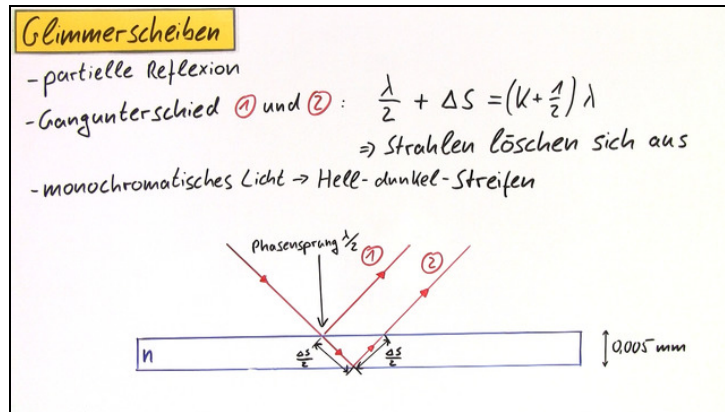 Glimmerscheiben
- partielle Reflexion
- Gangunterschied ① und ② : λ/2 + ΔS = (K + 1/2) λ
⇒ Strahlen löschen sich aus
- monochromatisches Licht → Hell-dunkel-Streifen
Phasensprung λ/2
① ②
n
ΔS/2 ΔS/2
0,005 mm